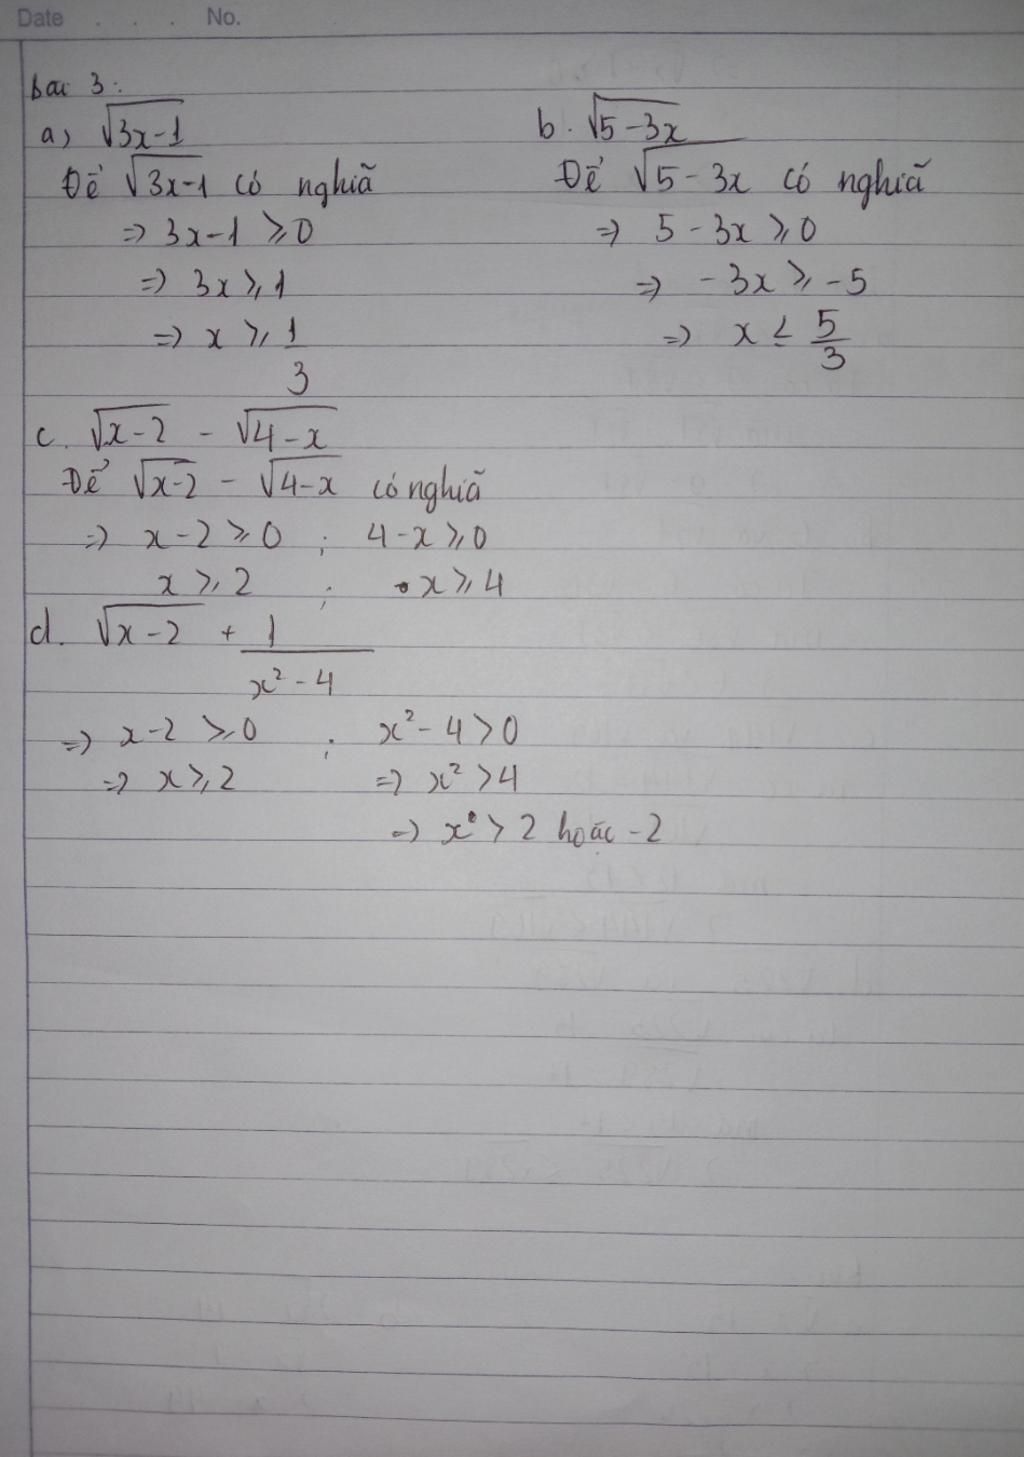 Date . . . No.
bài 3:
a) √3x-1
Để √3x-1 có nghiã
=> 3x-1 ⩾ 0
=> 3x ⩾ 1
=> x ⩾ 1/3
b. √5-3x
Để √5-3x có nghiã
=> 5-3x ⩾ 0
=> -3x ⩾ -5
=> x ≤ 5/3
c. √x-2 - √4-x
Để √x-2 - √4-x có nghiã
=> x-2 ⩾ 0 ; 4-x ⩾ 0
x ⩾ 2 ; x ⩾ 4
d. √x-2 + 1/x²-4
=> x-2 ⩾ 0 ; x²-4 > 0
=> x ⩾ 2 => x² > 4
=> x > 2 hoặc -2